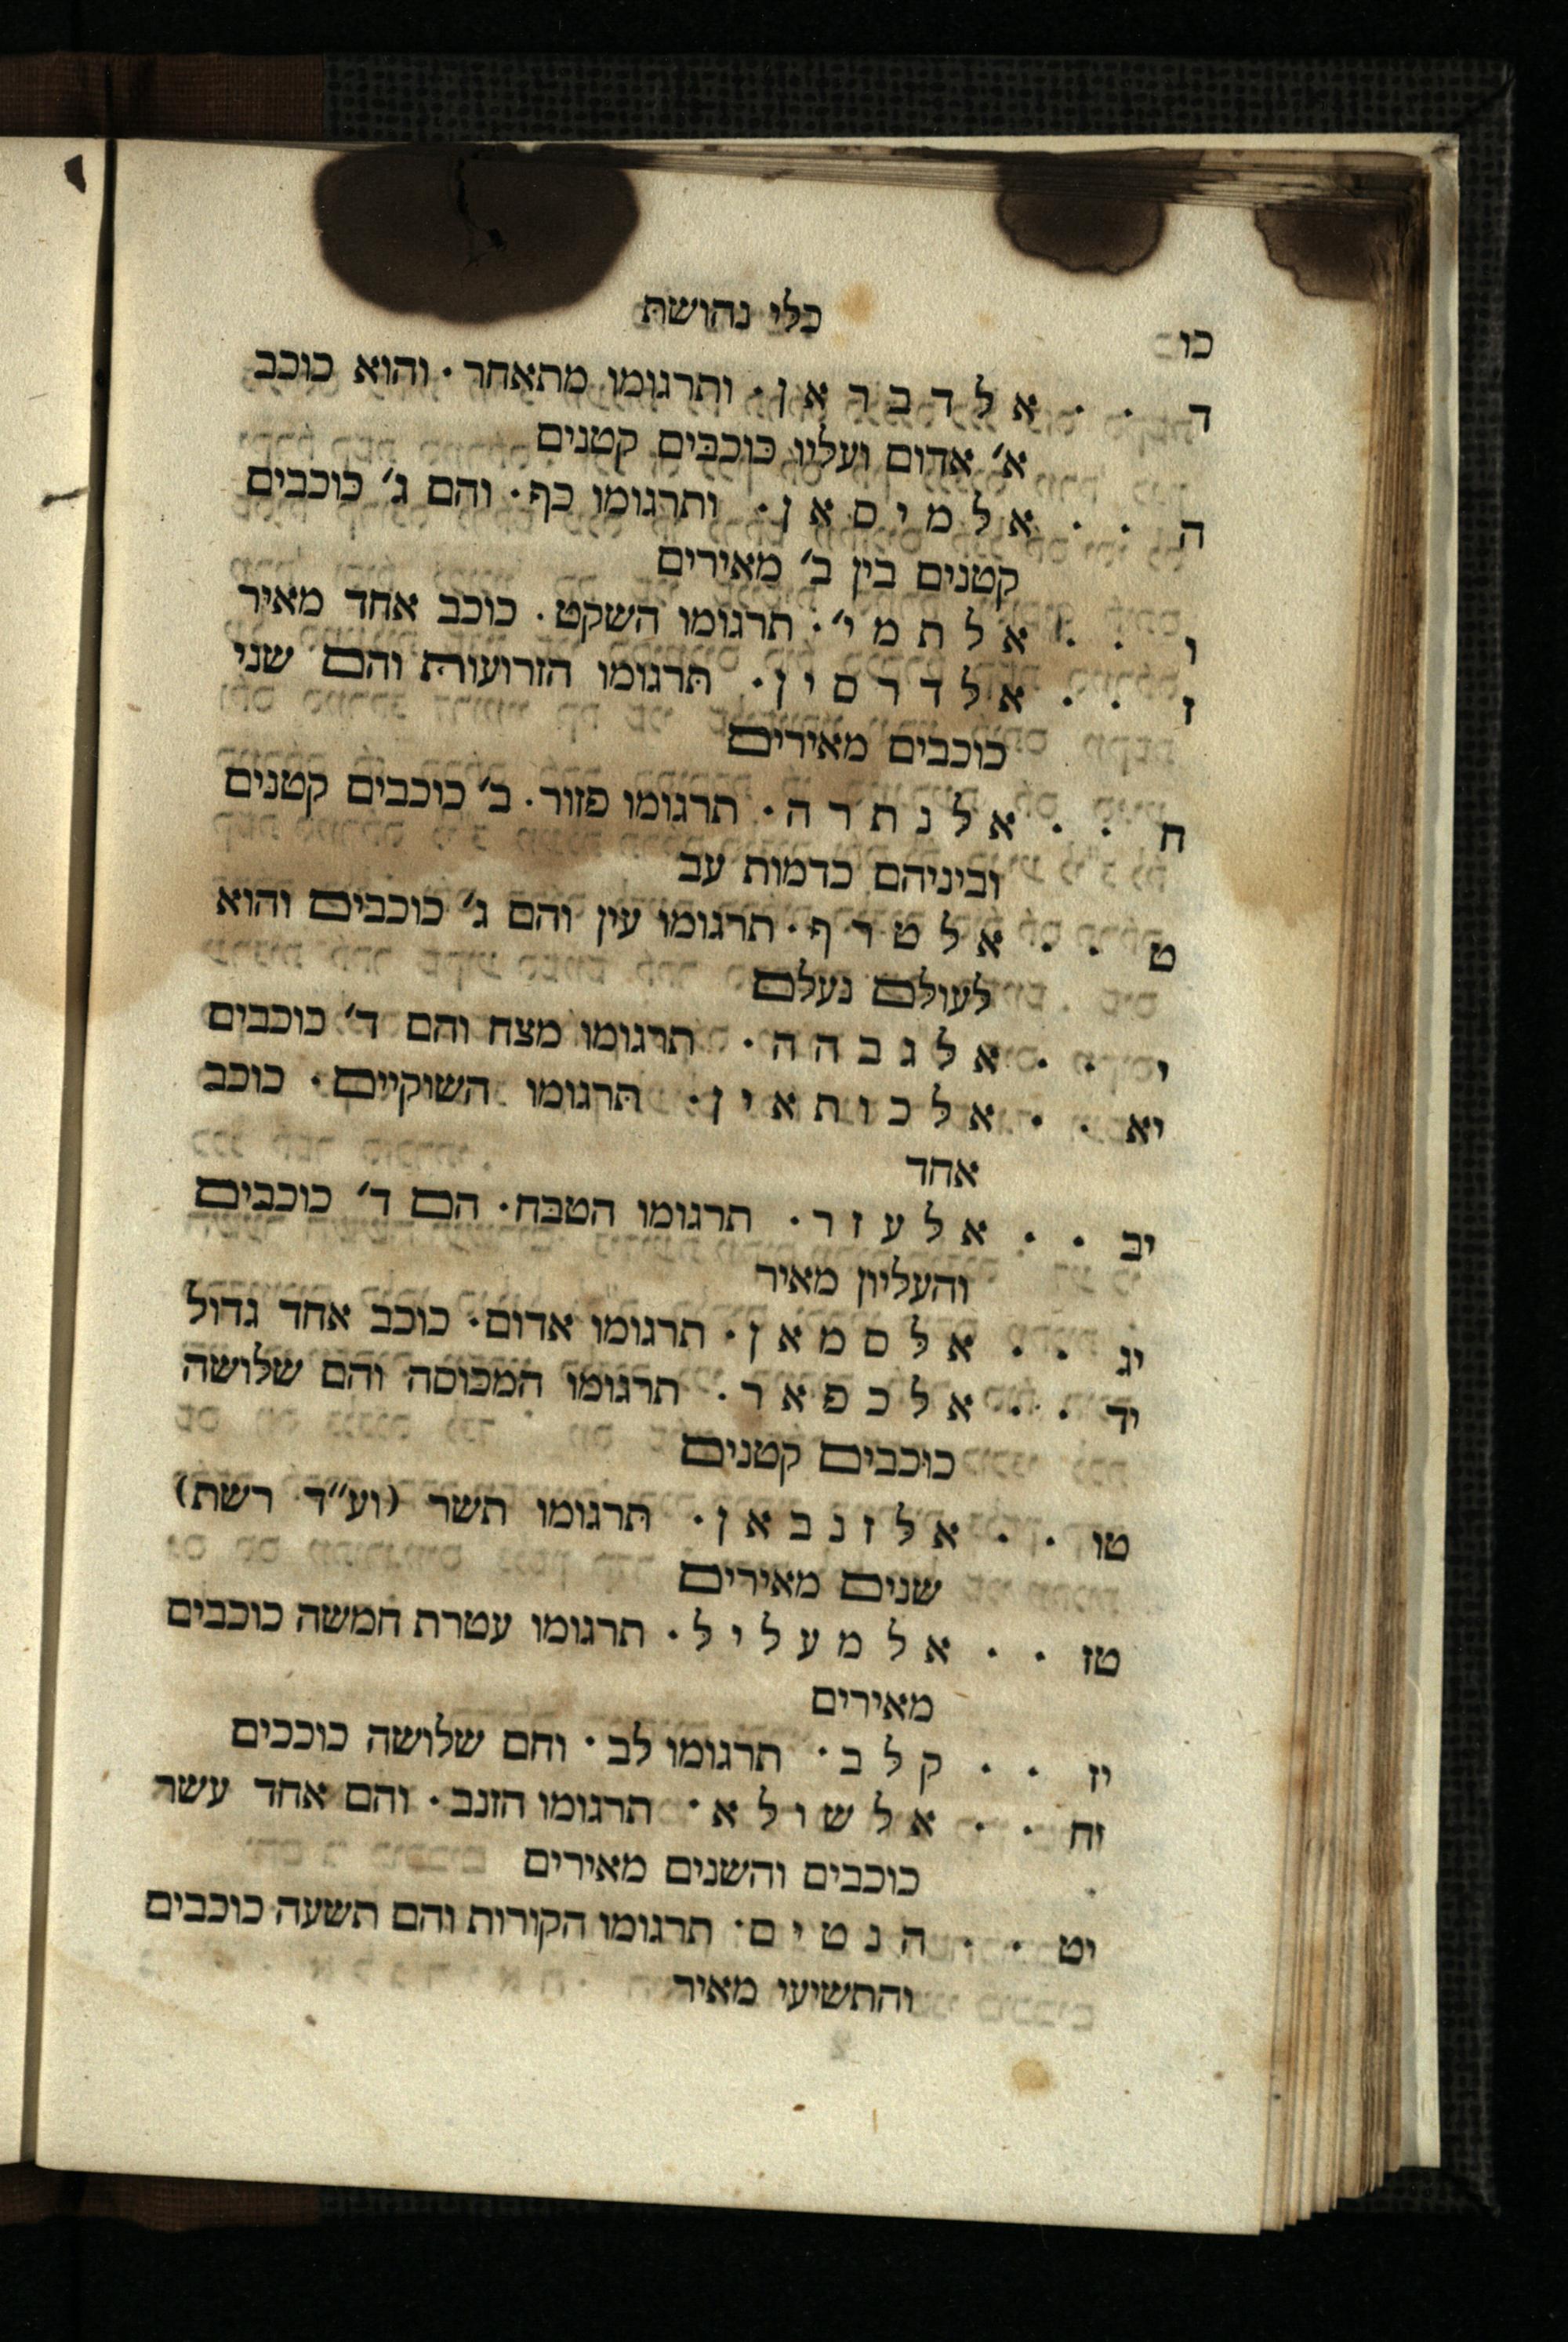 כו
כלי נהושת
ד · · א ל ד ב ר א ן · ותרגומו מתאחר · והוא כוכב
א׳ אדום ועליו כוכבים קטנים
ה · · א ל מ י ס א ן · ותרגומו כף · והם ג׳ כוכבים
קטנים בין ב׳ מאירים
ו · · א ל ת מ י׳ · תרגומו השקט · כוכב אחד מאיר
ז · · א ל ד ר ס י ן · תרגומו הזרועות והם שני
כוכבים מאירים
ח · · א ל נ ת ר ה · תרגומו פזור · ב׳ כוכבים קטנים
וביניהם כדמות עב
ט · · א ל ט ר ף · תרגומו עין והם ג׳ כוכבים והוא
לעולם נעלם
י · · א ל ג ב ה ה · תרגומו מצח והם ד׳ כוכבים
יא · · א ל כ ו ת א י ן · תרגומו השוקיים · כוכב
אחד
יב · · א ל ע ז ר · תרגומו הטבח · הם ד׳ כוכבים
והעליון מאיר
יג · · א ל ס מ א ן · תרגומו אדום · כוכב אחד גדול
יד · · א ל כ פ א ר · תרגומו המכוסה והם שלושה
כוכבים קטנים
טו · · א ל ז נ ב א ן · תרגומו תשר (וע״ד רשת)
שנים מאירים
טז · · א ל מ ע ל י ל · תרגומו עטרת חמשה כוכבים
מאירים
יז · · ק ל ב · תרגומו לב · וחם שלושה כוככים
זח · · א ל ש ו ל א · תרגומו הזנב · והם אחד עשר
כוכבים והשנים מאירים
יט · · ה נ ט י ם · תרגומו הקורות והם תשעה כוכבים
והתשיעי מאיר